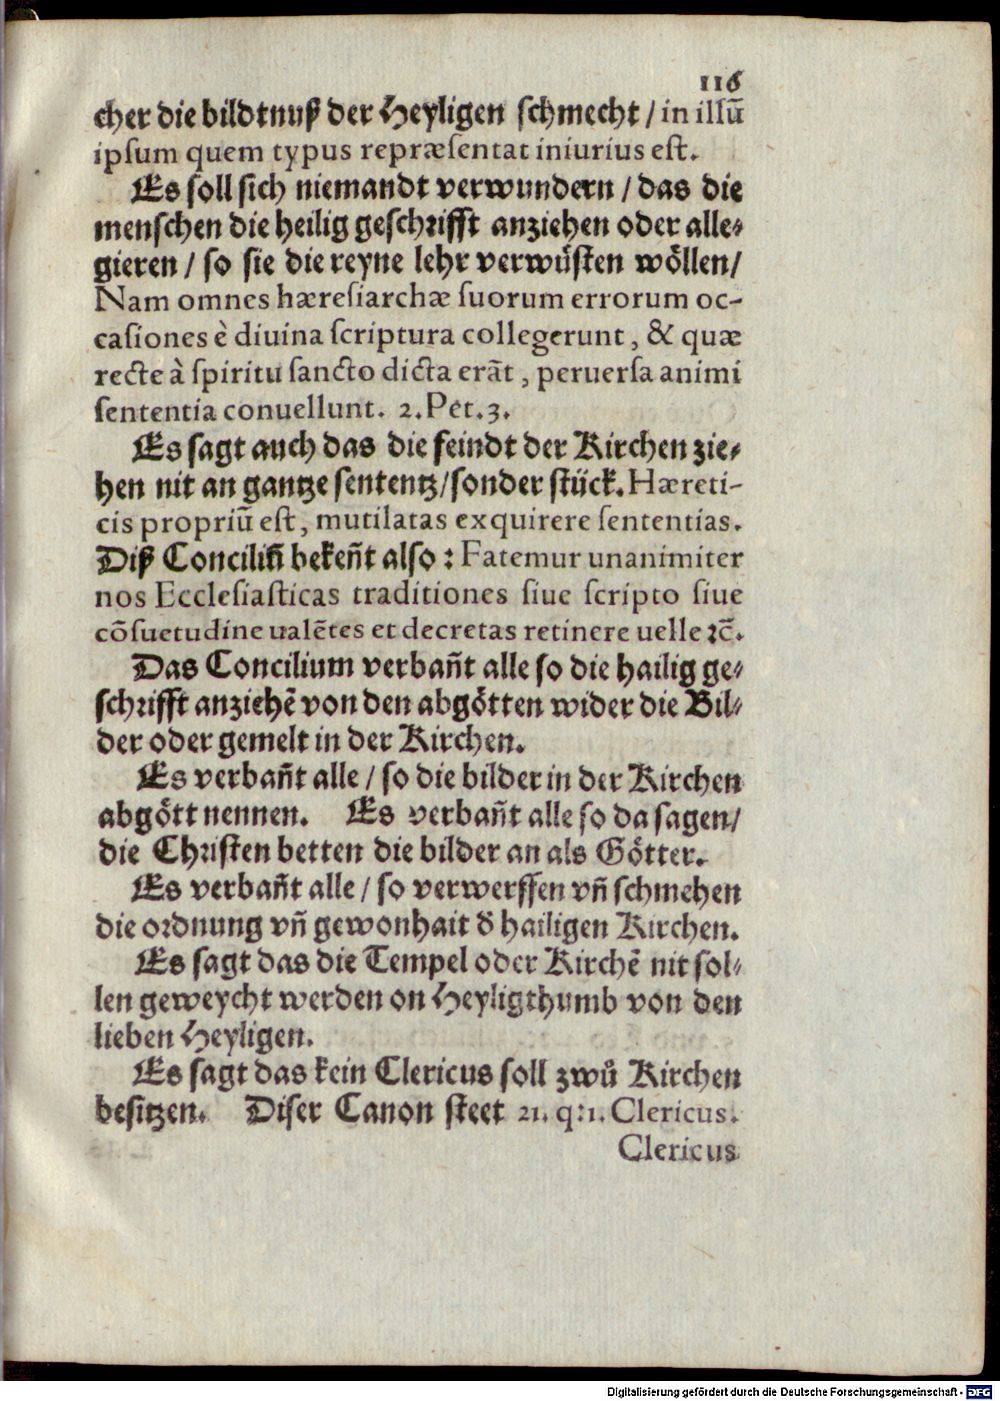 116
cher die bildtnuß der Heyligen schmecht / in illũ
ipsum quem typus repræsentat iniurius est.
Es soll sich niemandt verwundern / das die
menschen die heilig geschrifft anziehen oder alle⸗
gieren / so sie die reyne lehr verwuͤsten woͤllen /
Nam omnes hæresiarchæ suorum errorum oc-
casiones è diuina scriptura collegerunt, & quæ
recte à spiritu sancto dicta erãt, peruersa animi
sententia conuellunt. 2. Pet. 3.
Es sagt auch das die feindt der Kirchen zie⸗
hen nit an gantze sententz / sonder stück. Hæreti-
cis propriũ est, mutilatas exquirere sententias.
Diß Conciliũ bekeñt also : Fatemur unanimiter
nos Ecclesiasticas traditiones siue scripto siue
cõsuetudine ualẽtes et decretas retinere uelle ꝛc̃.
Das Concilium verbañt alle so die hailig ge⸗
schrifft anziehẽ von den abgoͤtten wider die Bil⸗
der oder gemelt in der Kirchen.
Es verbañt alle / so die bilder in der Kirchen
abgoͤtt nennen. Es verbañt alle so da sagen /
die Christen betten die bilder an als Goͤtter.
Es verbañt alle / so verwerffen vñ schmehen
die ordnung vñ gewonhait ð hailigen Kirchen.
Es sagt das die Tempel oder Kirchẽ nit sol⸗
len geweycht werden on Heyligthumb von den
lieben Heyligen.
Es sagt das kein Clericus soll zwů Kirchen
besitzen. Diser Canon steet 21. q:1. Clericus.
Clericus
Digitalisierung gefördert durch die Deutsche Forschungsgemeinschaft - DFG